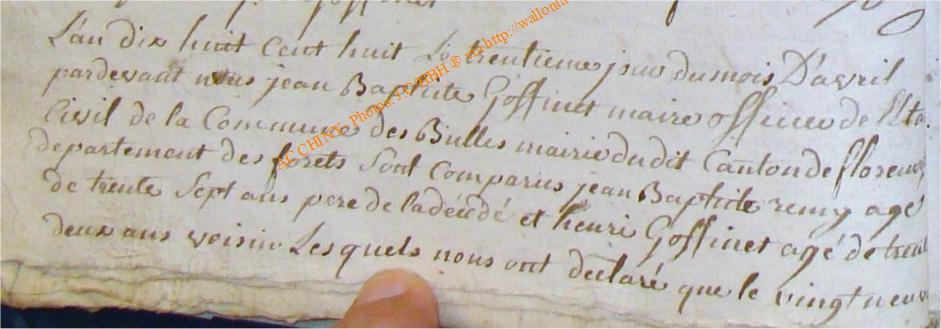 Goffinet
L'an dix huit cent huit Le trentieme jour du mois D'avril
pardevant nous jean Baptiste Goffinet maire officier de l'Eta
Civil de la Commune des Bulles mairie du dit Canton de florenv
departement des forets Sont Comparus jean Baptiste remy agé
de trente Sept ans pere de la décédé et henri Goffinet agé de trent
deux ans voisin Lesquels nous ont declaré que le vingt neuv
AC CHINY, Photos ® http://wallonia